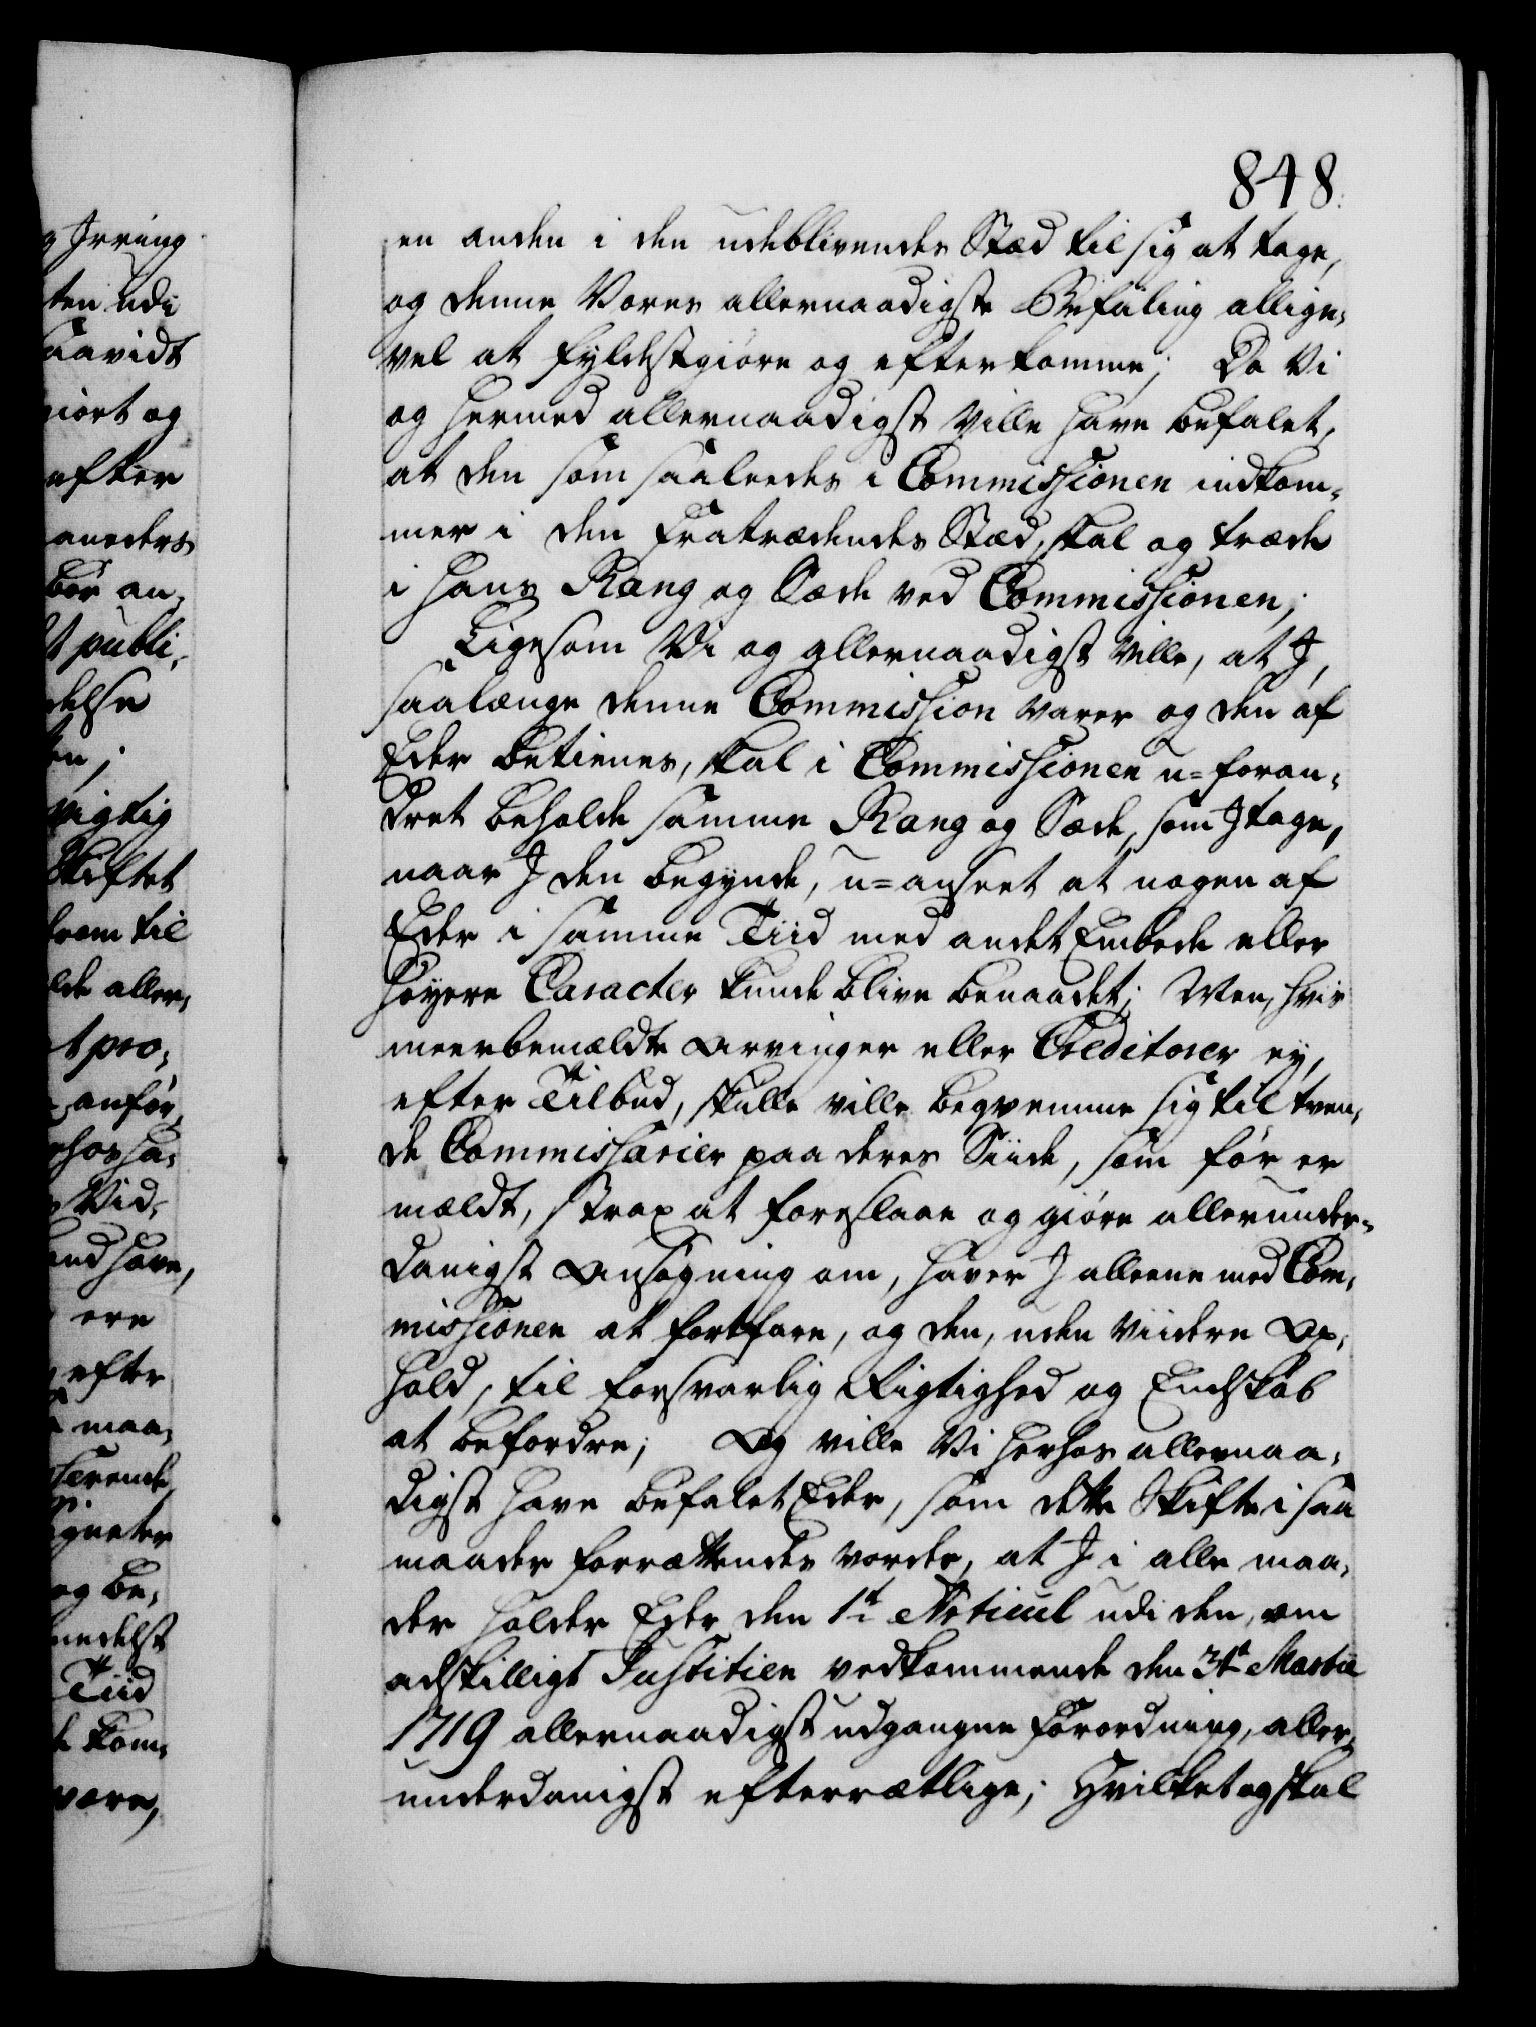 848.
en anden i den udeblivendes Stæd til sig at tage,
og denne Vores allernaadigste Befaling allige-
vel at fyldestgiøre og efterkomme; Da Vi
og hermed allernaadigst ville have befalet,
at den som saaleedes i Commissionen indkom-
mer i den fratrædendes Stæd, skal og træde
i hans Rang og Sæde ved Commissionen;
Ligesom Vi og allernaadigst ville, at I,
saalænge denne Commission varer og den af
Eder betienes, skal i Commissionen u=foran-
dret beholde samme Rang og Sæde, som I tage,
naar I den begynde, u=anseet at nogen af
Eder i samme Tiid med andet Embede eller
høyere Caracter kunde blive benaadet; Men, hvis
meerbemældte Arvinger eller Creditorer ey,
efter Tilbud, skulle ville beqvemme sig til tven-
de Commissarier paa deres Siide, som før er
mældt, strax at foreslaae og giøre allerunder-
danigst Ansøgning om, haver I alleene med Com-
missionen at fortfare, og den, uden viidere Op-
hold, til forsvarlig Rigtighed og Endskab
at befordre; Og ville Vi herhos allernaa-
digst have befalet Eder, som dette Skifte i saa
maader forrættendes vorder, at I i alle maa-
der holder Eder den 1te Articul udi den, om
adskilligt Justitien vedkommende den 31te Martii
1719 allernaadigst udgangne Forordning, aller-
underdanigst efterrættlige; Hvilket og skal